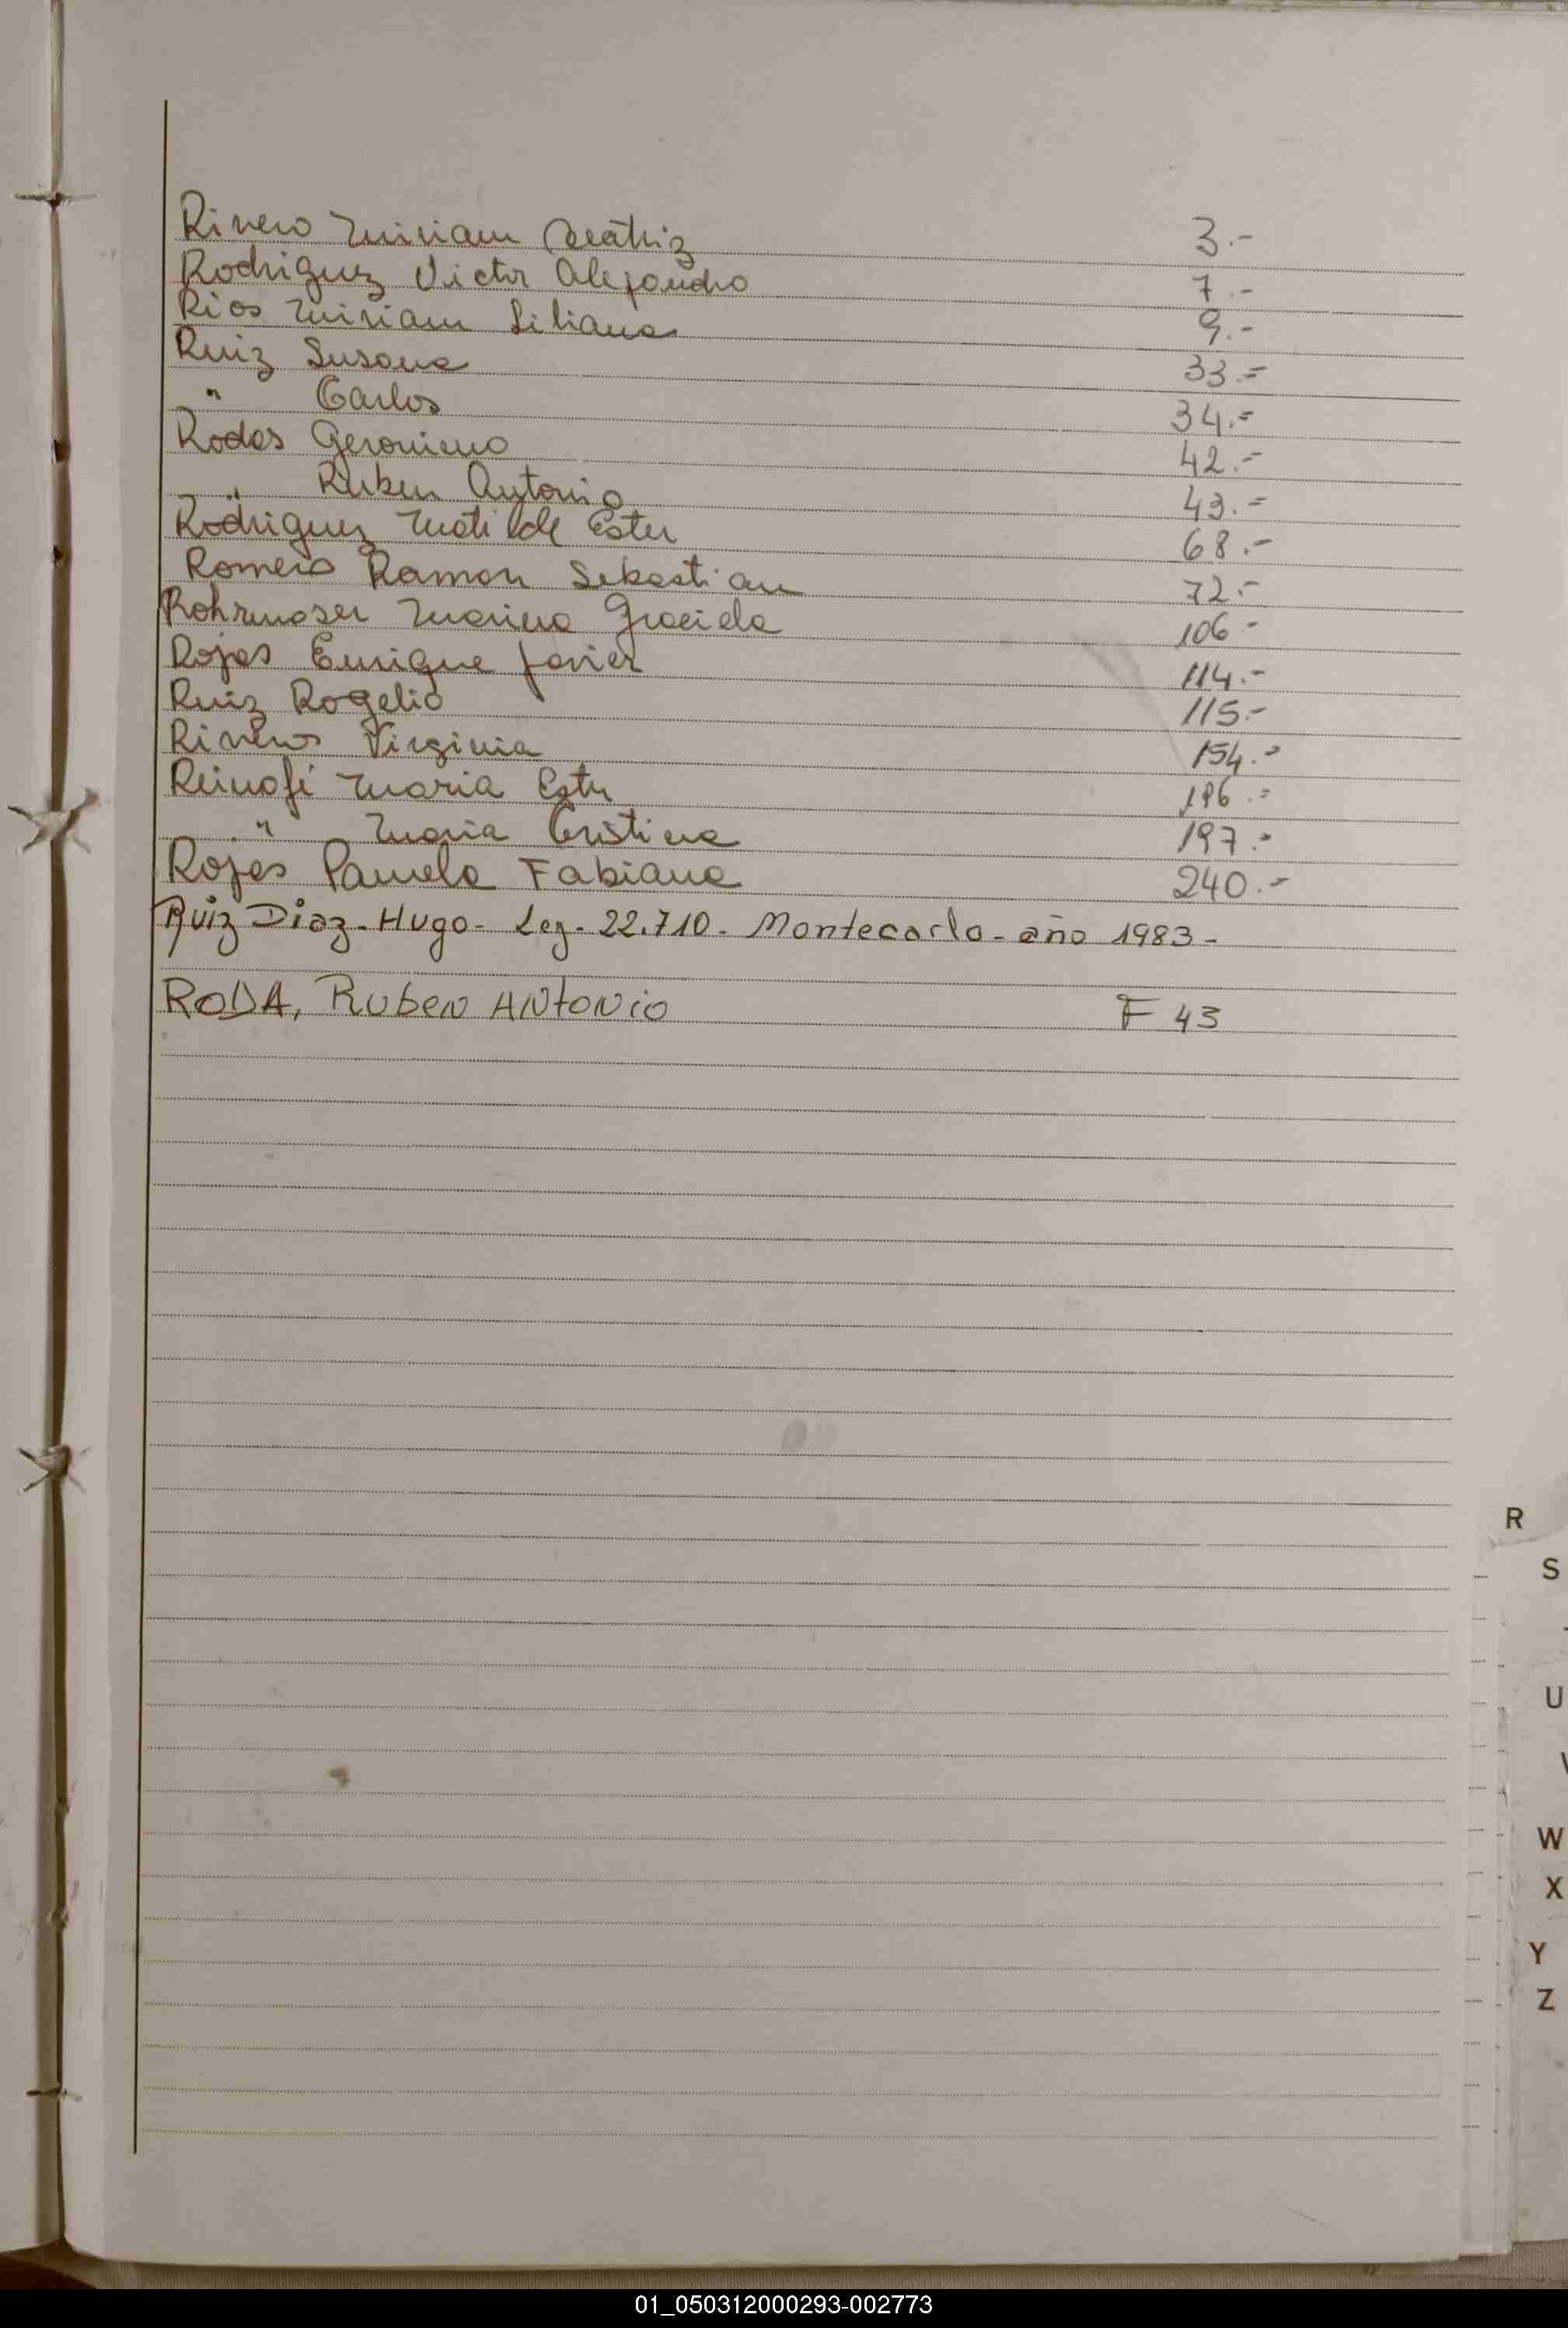 Rivero Miriam Beatriz 3.-
Rodriguez Victor Alejandro 7.-
Rios Miriam Liliana 9.-
Ruiz Susana 33.=
" Carlos 34.=
Rodas Geronimo 42.-
" Ruben Antonio 43.-
Rodriguez Matilde Ester 68.-
Romero Ramon Sebastian 72.-
Rohrmoser Marina Graciela 106-
Rojas Enrique Javier 114.-
Ruiz Rogelio 115.-
Riveros Virginia 154.-
Maria Ester 196.=
" Maria Cristina 197.-
Rojas Pamela Fabiana 240.-
Ruiz Diaz-Hugo- Leg-22.710- Montecarlo-año 1983-
RODA, Ruben ANtoNio F 43
R
S
U
W
X
Y
Z
01_050312000293-002773